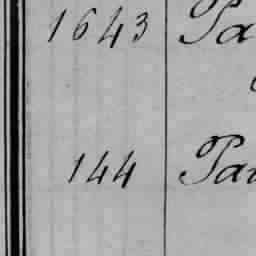 1643 Pa
144 Pa